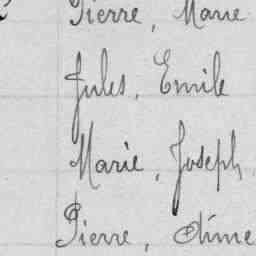 Pierre, Marie
Jules, Emile
Marie, Joseph,
Pierre, Aimé